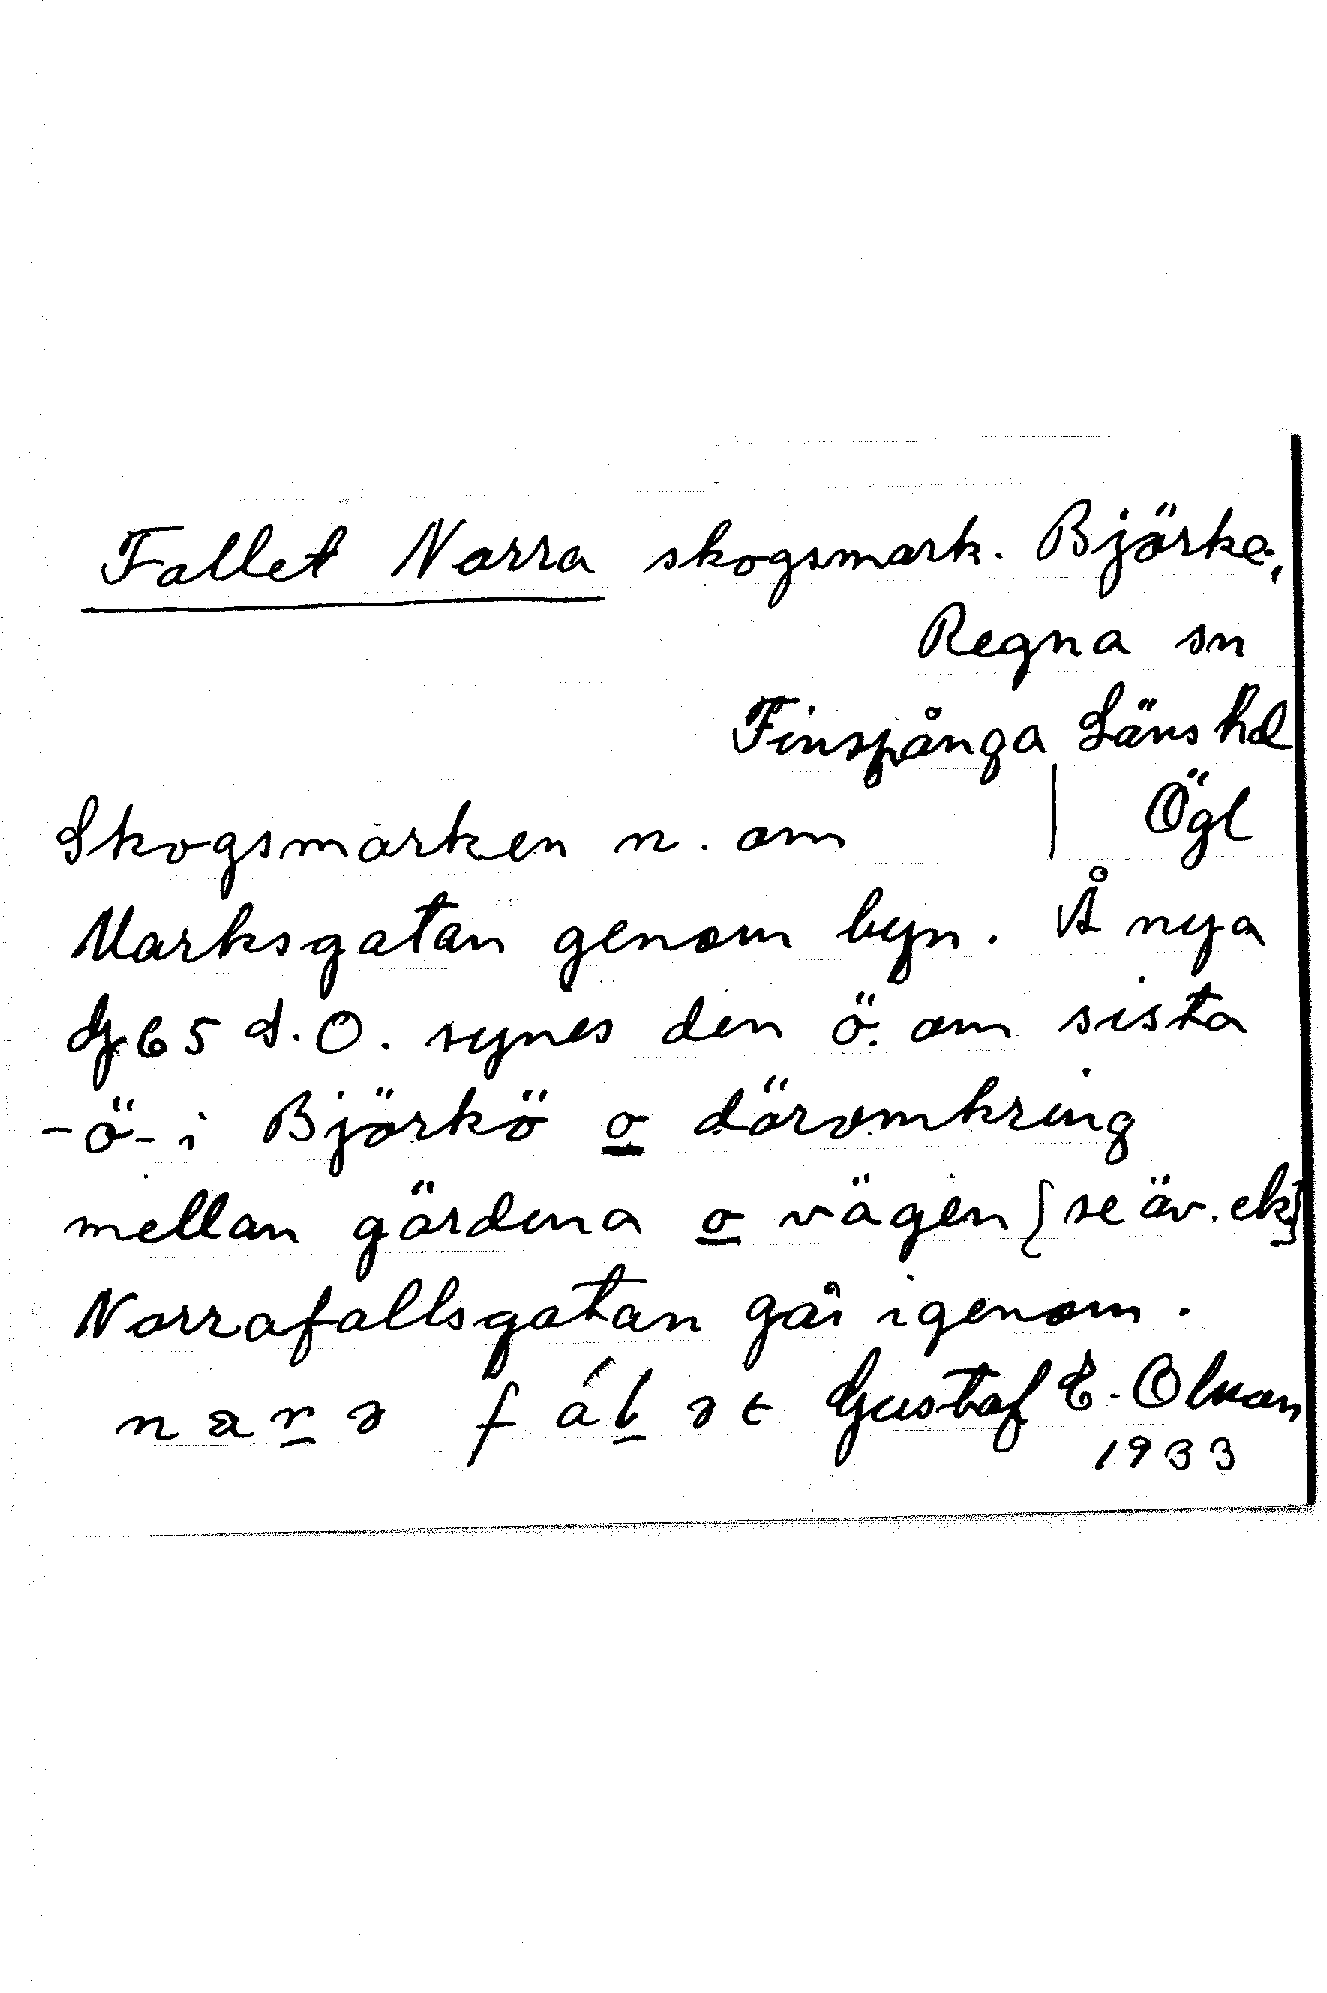 Fallet Norra skogsmark. Björke,
Regna sn
Finspånga Läns hd
Skogsmarken n. om | Ögl
Marksgatan genom byn. Å nya
G 65 d. O. synes den ö. om sista
-ö- i Björkö o däromkring
mellan gärdena o vägen [se äv. ek]
Norrafallsgatan går igenom.
Gustaf E. Olsson
1933